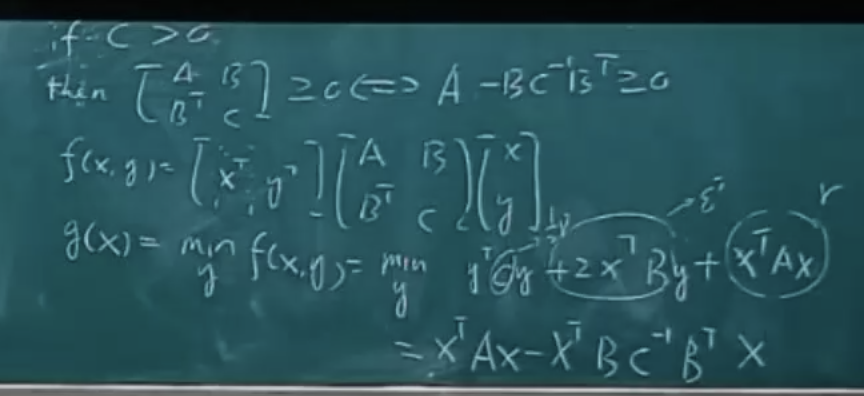 if C > 0
then [A B; Bᵀ C] ≥ 0 ⟺ A - BC⁻¹Bᵀ ≥ 0
f(x, y) = [xᵀ, yᵀ] [A B; Bᵀ C] [x; y]
g(x) = min_y f(x, y) = min_y yᵀCy + 2xᵀBy + xᵀAx r
= xᵀAx - xᵀBC⁻¹Bᵀx